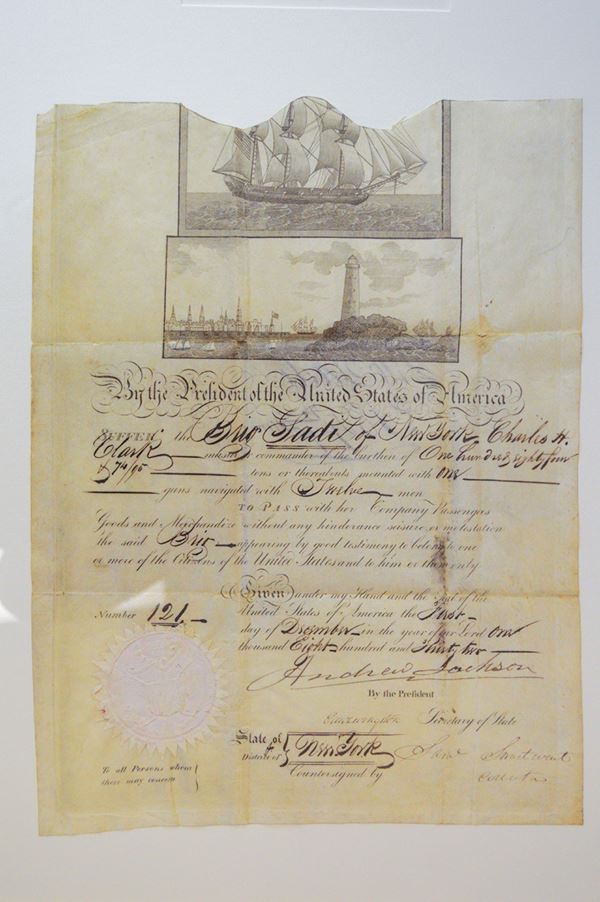 By the President of the United States of America
SUFFER the Brig Sadi of New York, Charles H.
Clark master or commander of the burthen of One hundred eighty four
& 74/95 tons or thereabouts mounted with one
guns navigated with Twelve men
TO PASS with her Company Passengers
Goods and Merchandize without any hinderance seisure or molestation
the said Brig appearing by good testimony to belong to one
or more of the Citizens of the United States and to him or them only
Given under my Hand and the Seal of the
United States of America the First
Number 121.
day of December in the year of our Lord One
thousand Eight hundred and Thirty two
Andrew Jackson
By the President
Edw Livingston Secretary of State
State of
District of New York
Countersigned by
Saml Swartwout
Collector
To all Persons whom
these may concern